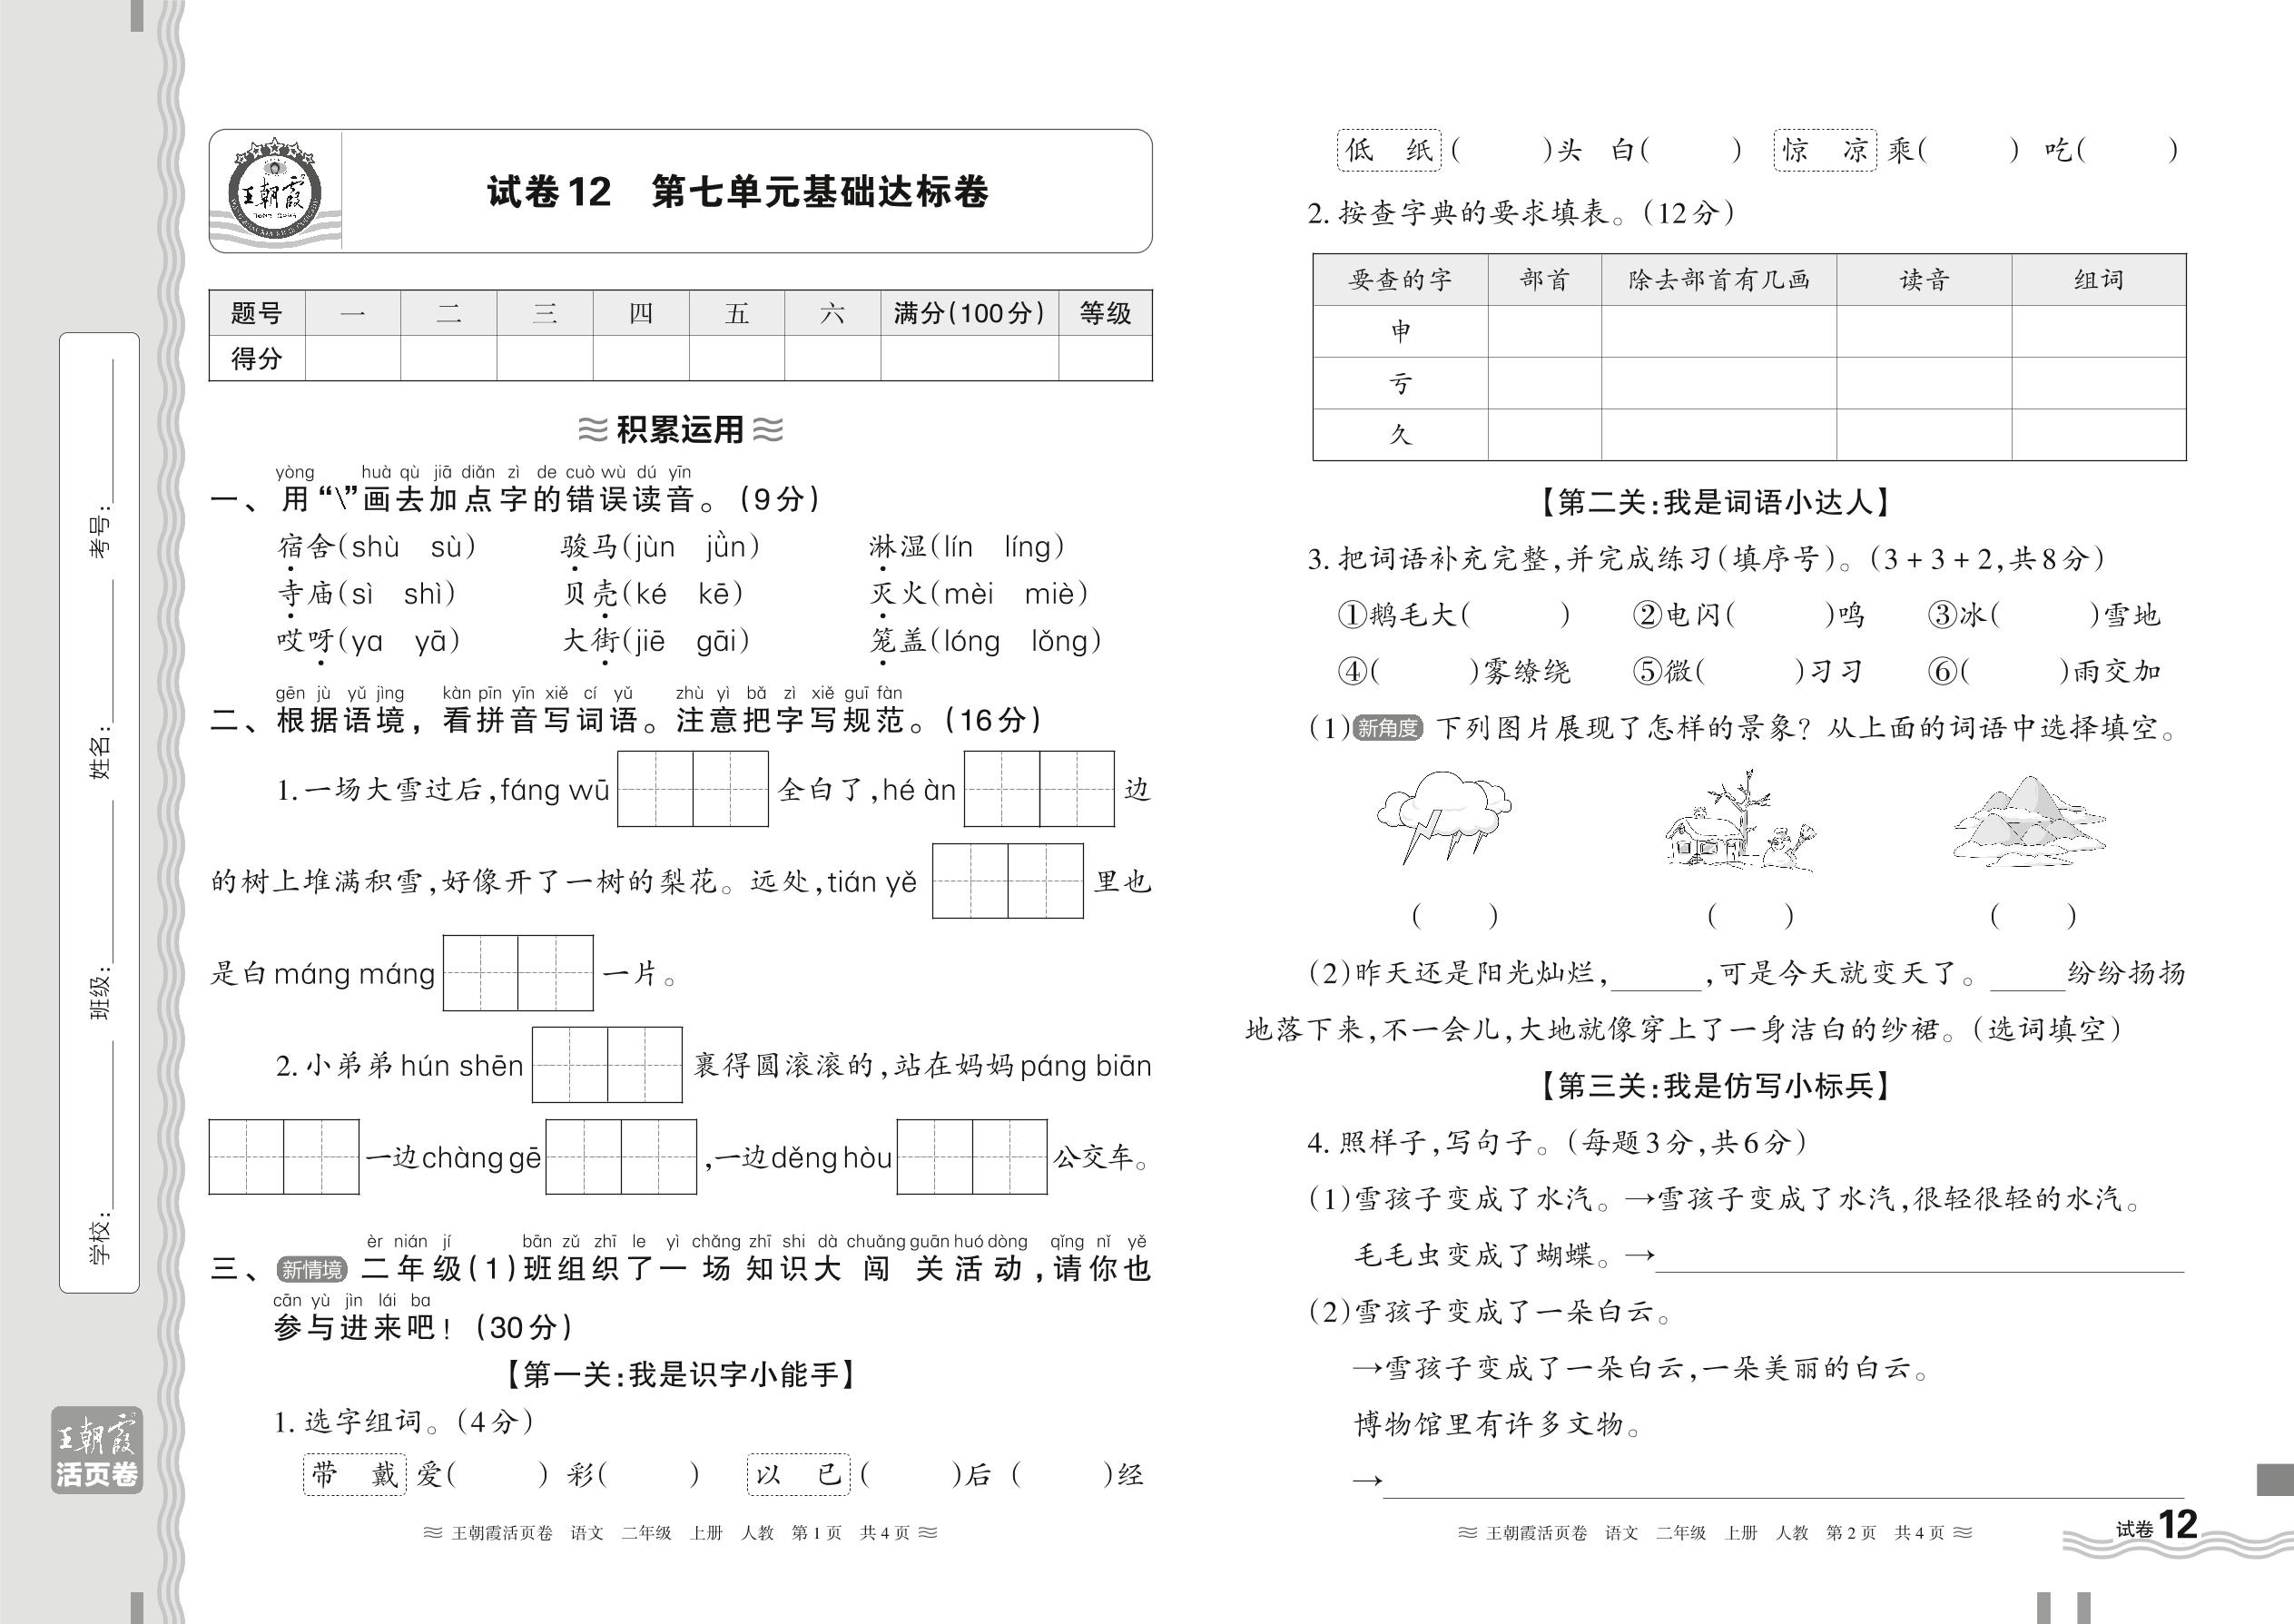 学校:
班级:
姓名:
考号:
王朝霞
活页卷
王朝霞
试卷12 第七单元基础达标卷
题号 一 二 三 四 五 六 满分(100分) 等级
得分
积累运用
yòng huà qù jiā diǎn zì de cuò wù dú yīn
一、用“\”画去加点字的错误读音。(9分)
宿舍(shù sù) 骏马(jùn jǜn) 淋湿(lín líng)
寺庙(sì shì) 贝壳(ké kē) 灭火(mèi miè)
哎呀(ya yā) 大街(jiē gāi) 笼盖(lóng lǒng)
gēn jù yǔ jìng kàn pīn yīn xiě cí yǔ zhù yì bǎ zì xiě guī fàn
二、根据语境,看拼音写词语。注意把字写规范。(16分)
1.一场大雪过后,fáng wū 全白了,hé àn 边
的树上堆满积雪,好像开了一树的梨花。远处,tián yě 里也
是白máng máng 一片。
2.小弟弟hún shēn 裹得圆滚滚的,站在妈妈páng biān
一边chàng gē ,一边děng hòu 公交车。
èr nián jí bān zǔ zhī le yì chǎng zhī shi dà chuǎng guān huó dòng qǐng nǐ yě
三、新情境 二年级(1)班组织了一场知识大闯关活动,请你也
cān yù jìn lái ba
参与进来吧!(30分)
【第一关:我是识字小能手】
1.选字组词。(4分)
带 戴 爱( ) 彩( ) 以 已 ( )后 ( )经
王朝霞活页卷 语文 二年级 上册 人教 第1页 共4页
低 纸 ( )头 白( ) 惊 凉 乘( ) 吃( )
2.按查字典的要求填表。(12分)
要查的字 部首 除去部首有几画 读音 组词
申
亏
久
【第二关:我是词语小达人】
3.把词语补充完整,并完成练习(填序号)。(3+3+2,共8分)
①鹅毛大( ) ②电闪( )鸣 ③冰( )雪地
④( )雾缭绕 ⑤微( )习习 ⑥( )雨交加
(1)新角度 下列图片展现了怎样的景象?从上面的词语中选择填空。
( ) ( ) ( )
(2)昨天还是阳光灿烂,______,可是今天就变天了。_____纷纷扬扬
地落下来,不一会儿,大地就像穿上了一身洁白的纱裙。(选词填空)
【第三关:我是仿写小标兵】
4.照样子,写句子。(每题3分,共6分)
(1)雪孩子变成了水汽。→雪孩子变成了水汽,很轻很轻的水汽。
毛毛虫变成了蝴蝶。→
(2)雪孩子变成了一朵白云。
→雪孩子变成了一朵白云,一朵美丽的白云。
博物馆里有许多文物。
→
王朝霞活页卷 语文 二年级 上册 人教 第2页 共4页
试卷12